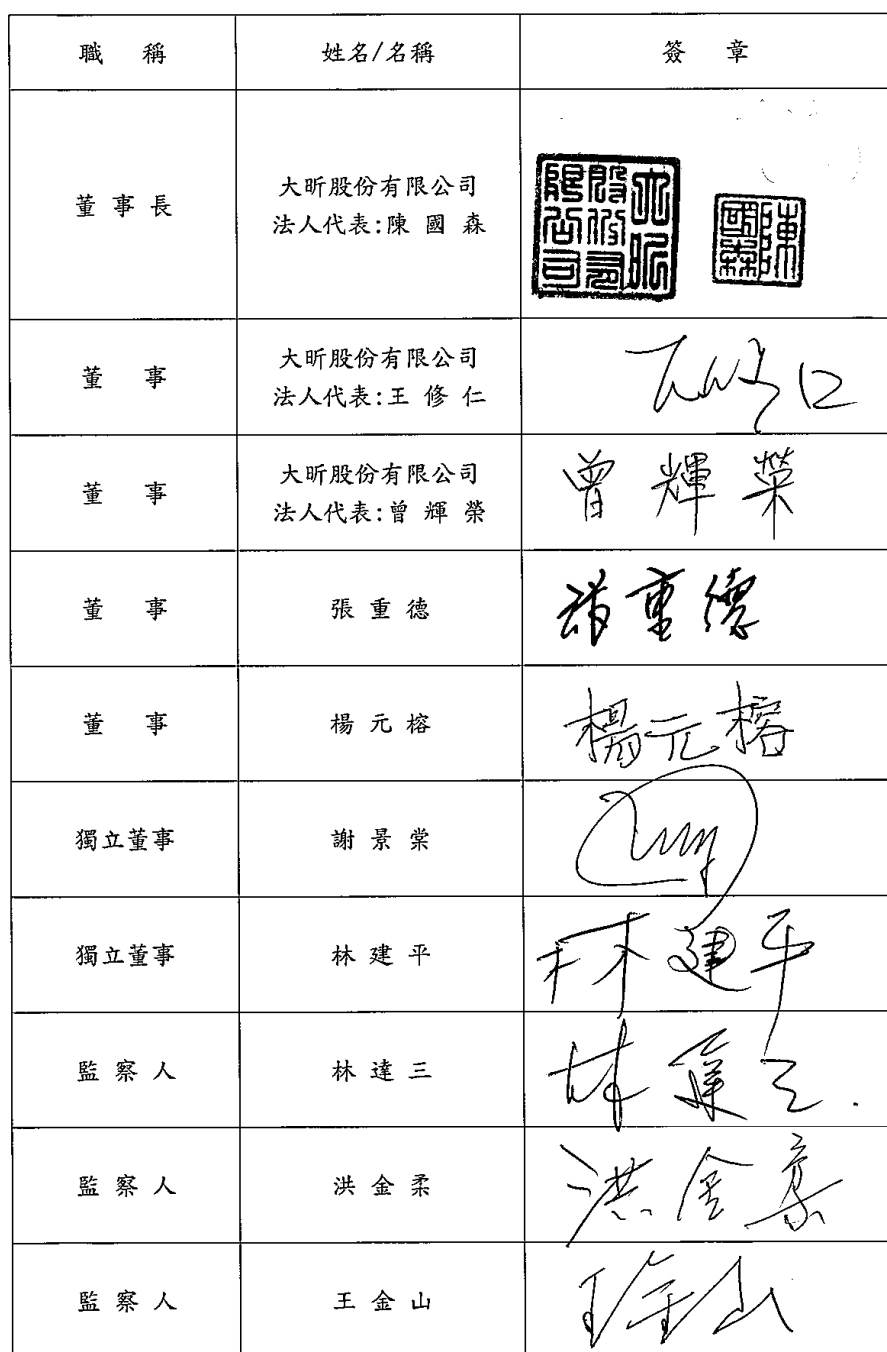 職 稱 姓名/名稱 簽 章
董 事 長 大昕股份有限公司
法人代表:陳 國 森
大昕股份有限公司
陳國森
董 事 大昕股份有限公司
法人代表:王 修 仁
董 事 大昕股份有限公司
法人代表:曾 輝 榮
曾 輝 榮
董 事 張 重 德
張重德
董 事 楊 元 榕
楊元榕
獨立董事 謝 景 棠
獨立董事 林 建 平
林建平
監 察 人 林 達 三
林達三
監 察 人 洪 金 柔
洪金柔
監 察 人 王 金 山
王金山